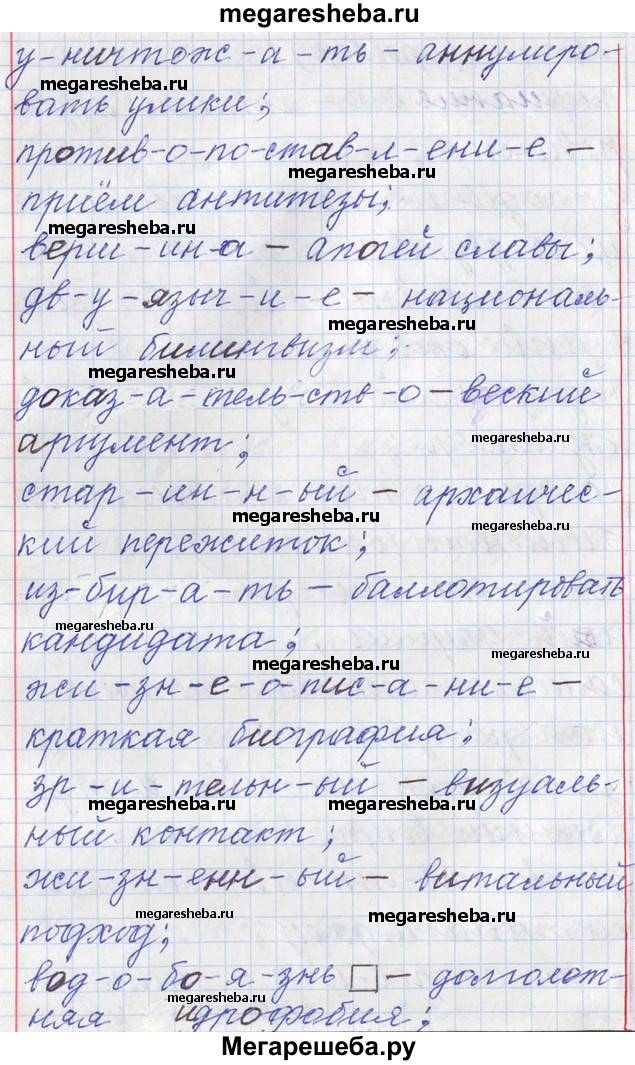 megaresheba.ru
у-ничтож-а-ть - аннулиро-
megaresheba.ru megaresheba.ru
вать улики;
против-о-по-став-л-ени-е -
megaresheba.ru
приём антитезы;
megaresheba.ru
верш-ин-а - апогей славы;
дв-у-языч-и-е - националь-
megaresheba.ru
ный билингвизм;
megaresheba.ru
доказ-а-тель-ств-о - веский
megaresheba.ru
аргумент;
стар-ин-н-ый - архаичес-
megaresheba.ru megaresheba.ru
кий пережиток;
из-бир-а-ть - баллотировать
megaresheba.ru
кандидата;
megaresheba.ru megaresheba.ru
жи-зн-е-о-пис-а-ни-е -
краткая биография;
зр-и-тельн-ый - визуаль-
megaresheba.ru megaresheba.ru
ный контакт;
жи-зн-енн-ый - витальный
megaresheba.ru megaresheba.ru
подход;
вод-о-бо-я-знь □ - долголот-
megaresheba.ru megaresheba.ru
няя идрофобия;
Мегарешеба.ру